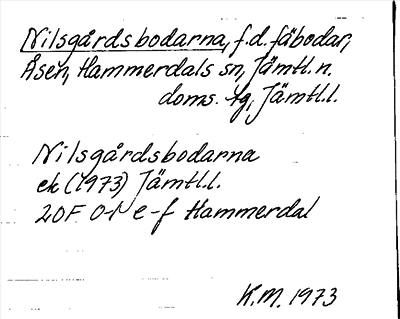 Nilsgårdsbodarna, f.d. fäbodar,
Åsen, Hammerdals sn, Jämtl. n.
doms. tg, Jämtl.l.
Nilsgårdsbodarna
ek (1973) Jämtl.l.
20F 0-1 e-f Hammerdal
K.M. 1973